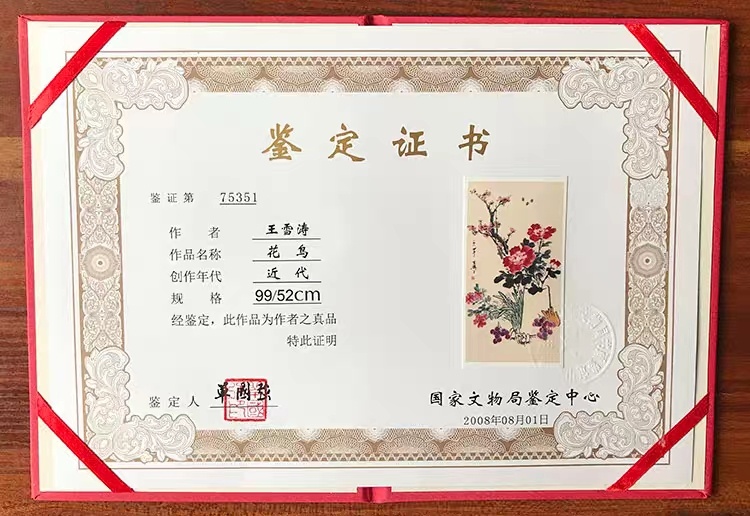 鉴定证书
鉴证第 75351
作者 王雪涛
作品名称 花鸟
创作年代 近代
规格 99/52cm
经鉴定，此作品为作者之真品
特此证明
鉴定人 单國强
国家文物局鉴定中心
2008年08月01日